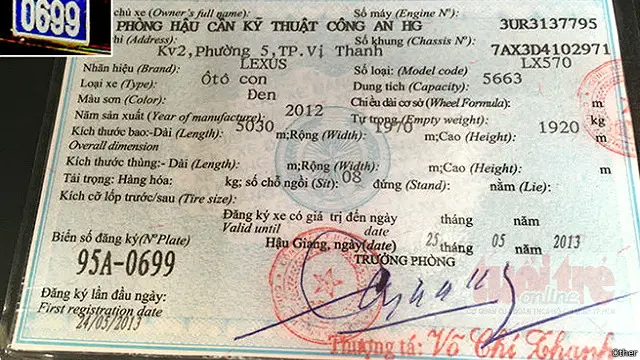 0699
chủ xe (Owner's full name): Số máy (Engine Nº):
PHÒNG HẬU CẦN KỸ THUẬT CÔNG AN HG 3UR3137795
chỉ (Address): Số khung (Chassis Nº):
Kv2,Phường 5,TP.Vị Thanh 7AX3D4102971
Nhãn hiệu (Brand): LEXUS Số loại: (Model code) LX570
Loại xe (Type): Ôtô con Dung tích (Capacity): 5663
Màu sơn (Color): Đen Chiều dài cơ sở (Wheel Formula): m
Năm sản xuất (Year of manufacture): 2012 Tự trọng (Empty weight): kg
Kích thước bao:- Dài (Length): 5030 m;Rộng (Width): 1970 m;Cao (Height): 1920 m
Overall dimension
Kích thước thùng:- Dài (Length): m;Rộng (Width): m;Cao (Height): m
Tải trọng: Hàng hóa: kg; số chỗ ngồi (Sit): 08 đứng (Stand): nằm (Lie):
Kích cỡ lốp trước/sau (Tire size):
Đăng ký xe có giá trị đến ngày tháng năm
Valid until date
Biển số đăng ký(Nº Plate) Hậu Giang, ngày(date) 25 tháng 05 năm 2013
95A-0699 TRƯỞNG PHÒNG
Đăng ký lần đầu ngày:
First registration date
24/05/2013
tuổi trẻ
online
Thượng tá: Võ Chí Thanh
©ther